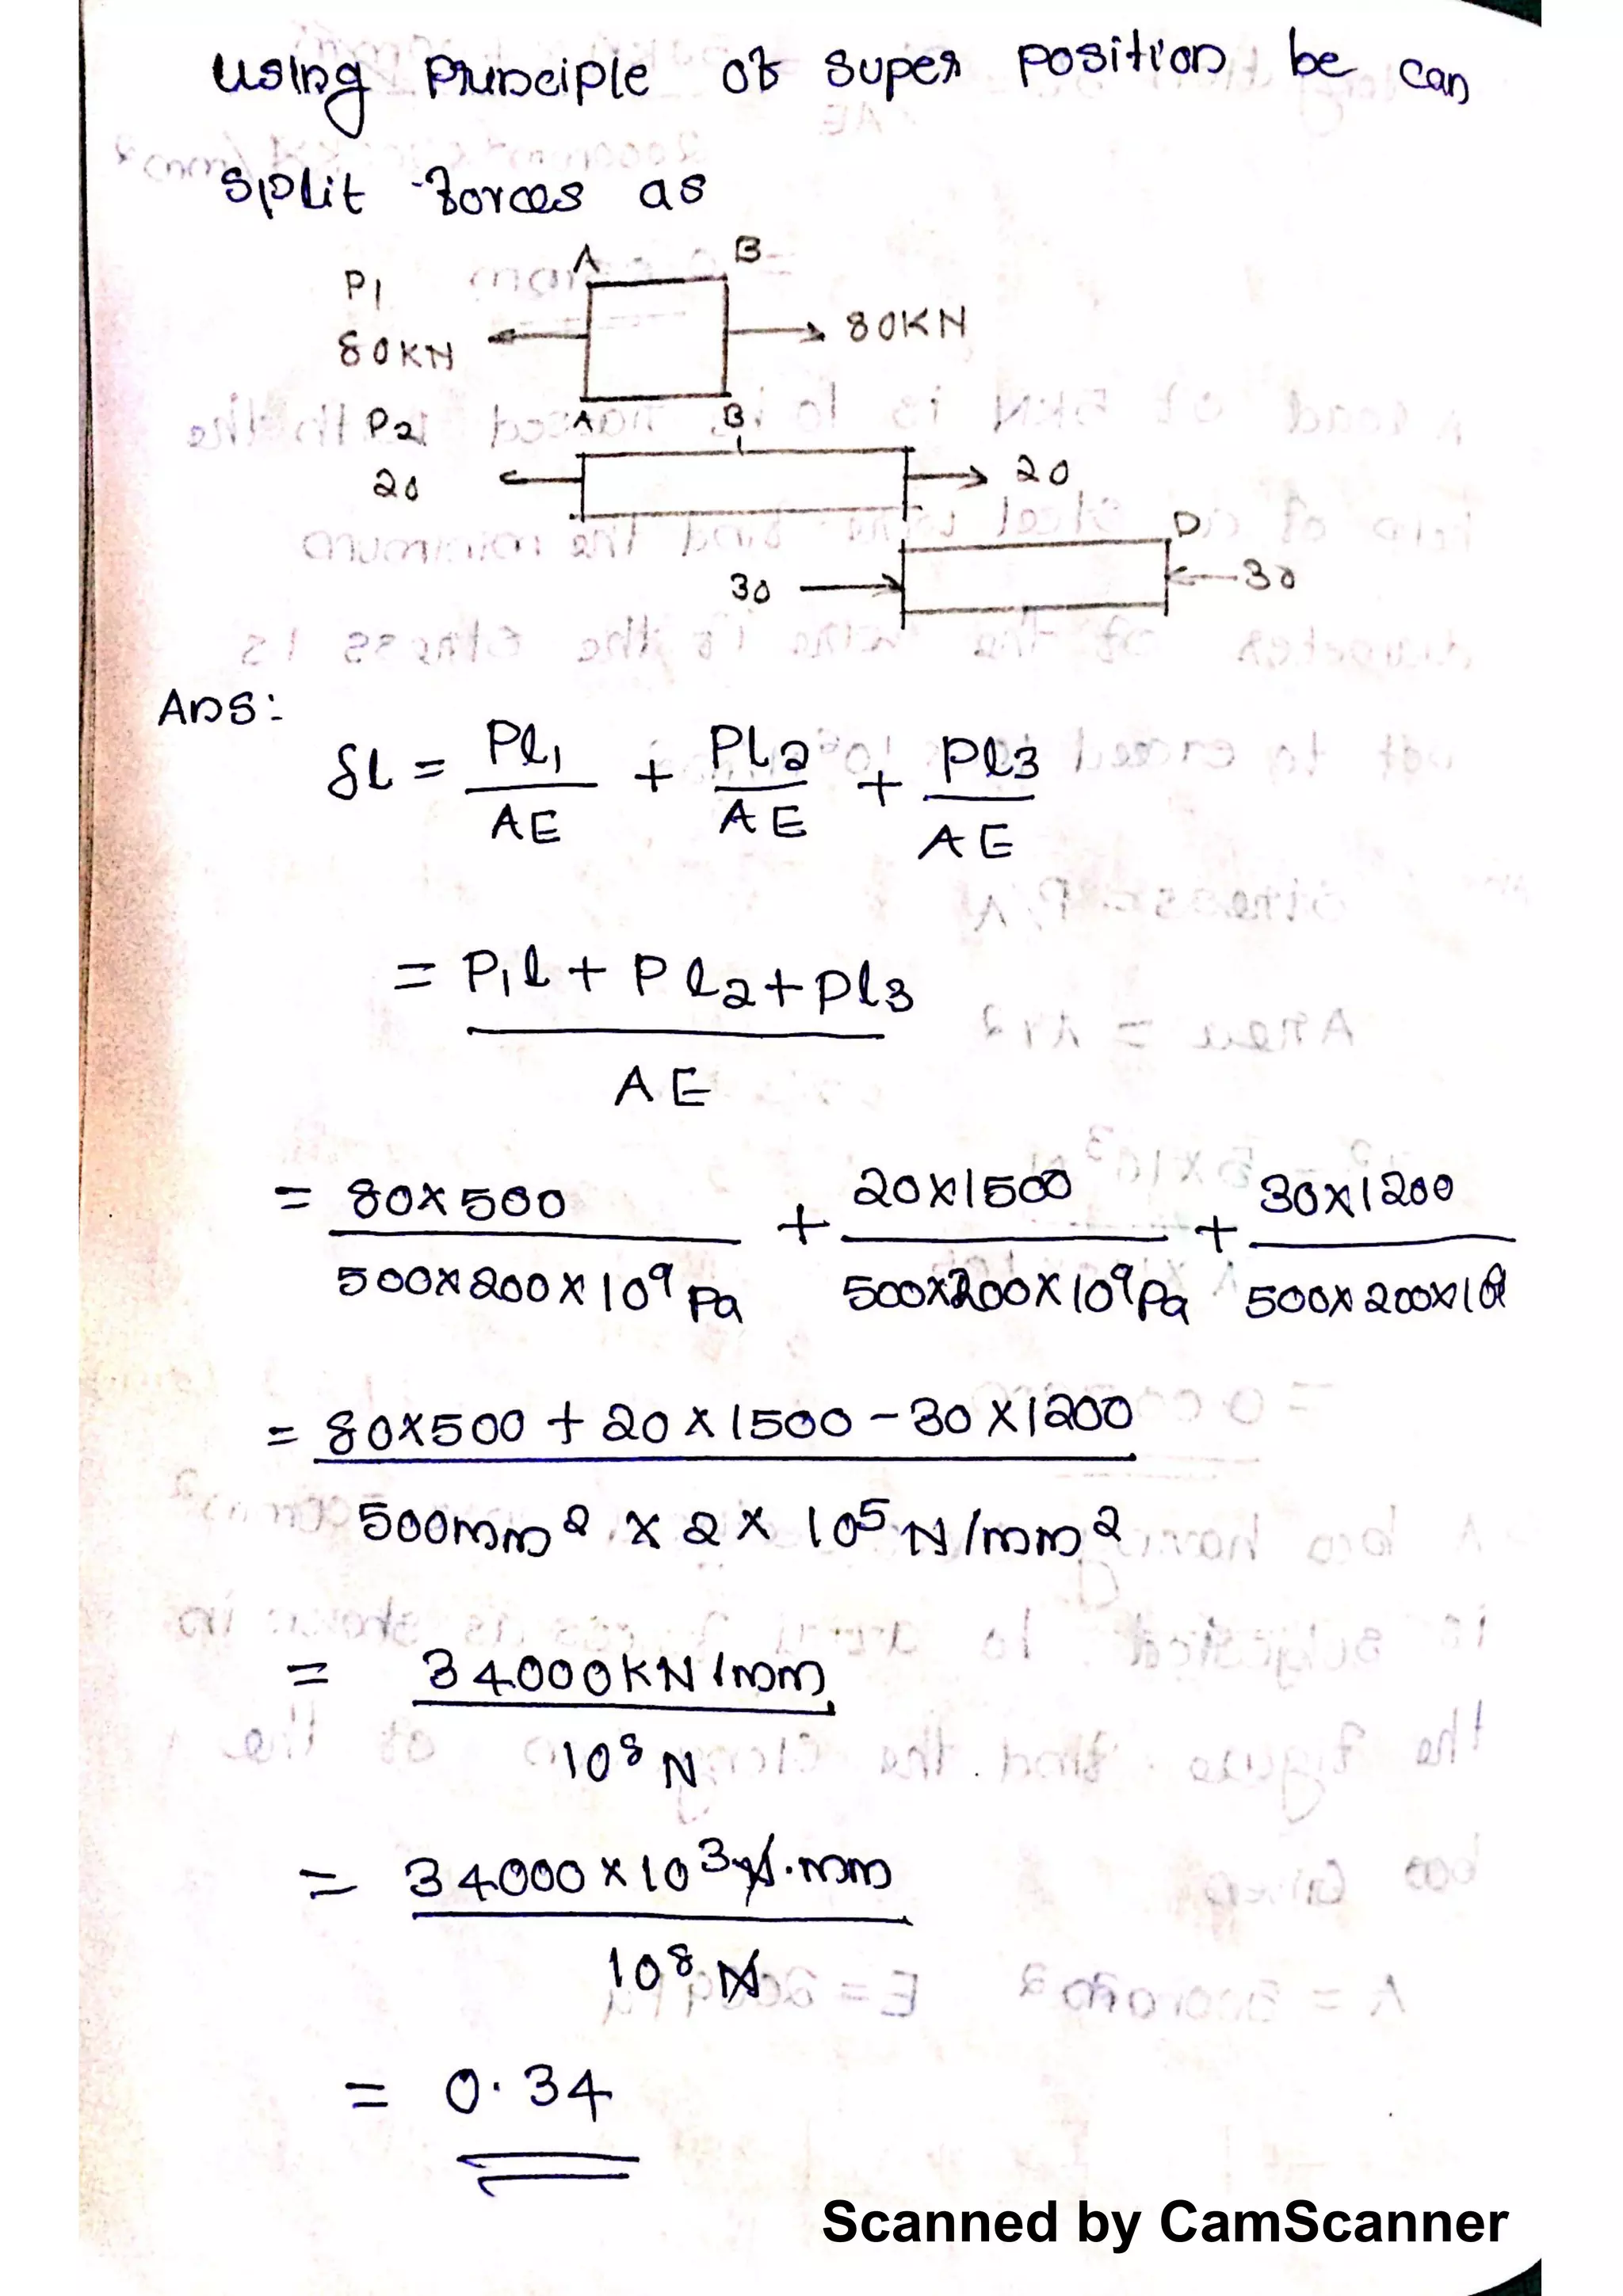 using Principle of super position be can
split forces as
A B
P1
80KN 80KN
P2 A B
20 20
D
30 30
Ans:
δL = Pl1/AE + PL2/AE + Pl3/AE
= P1l + Pl2 + Pl3
AE
= 80x500 + 20x1500 + 30x1200
500x200x10⁹ Pa 500x200x10⁹Pa 500x200x10⁹
= 80x500 + 20x1500 - 30x1200
500mm² x 2x 10⁵ N/mm²
= 34000KN/mm
10⁸ N
= 34000x10³N.mm
10⁸ N
= 0.34
Scanned by CamScanner